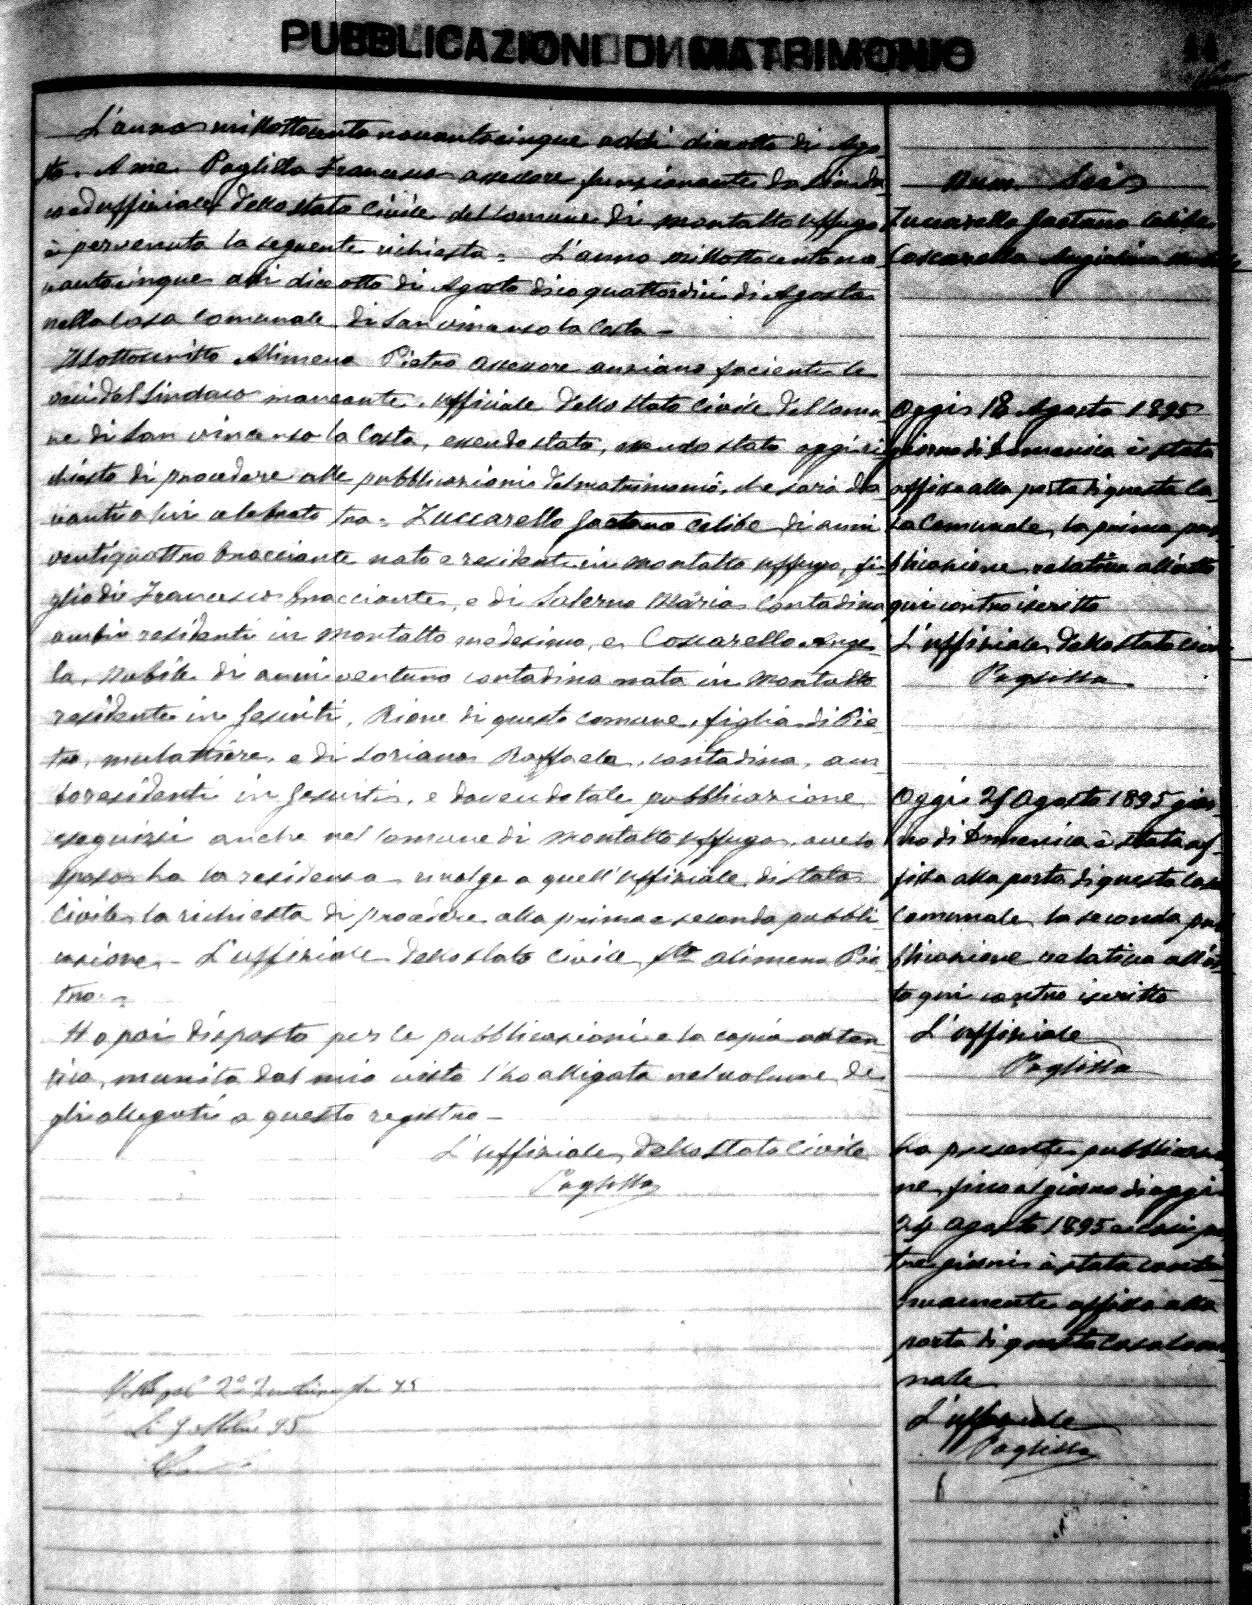 PUBBLICAZIONI DI MATRIMONIO
L'anno millottocento novantacinque addì diciotto di Ago-
sto. A me Paglilla Francesco assessore funzionante da Sinda-
co ed uffiziale dello stato Civile del Comune di Montalto Uffugo
è pervenuta la seguente richiesta = L'anno millottocentono-
vantacinque addì diciotto di Agosto dico quattordici di Agosto
nella Casa Comunale di San Vincenzo la Costa -
Il sottoscritto Alimena Pietro assessore anziano facente le
veci del Sindaco mancante, uffiziale dello stato Civile del Comu-
ne di San Vincenzo la Costa, essendo stato, essendo stato oggi ri-
chiesto di procedere alle pubblicazioni del matrimonio, che sarà da
vanti a lui celebrato tra = Zuccarello Gaetano celibe di anni
ventiquattro bracciante nato e residente in Montalto Uffugo, fi-
glio di Francesco bracciante, e di Salerno Maria Contadina
ambi residenti in Montalto medesimo, e Coscarello Ange-
la, Nubile di anni ventuno contadina nata in Montalto
residente in Gesuiti, Rione di questo comune, figlia di Pie-
tro, mulattiere, e di Soriano Raffaela, contadina, am-
bo residenti in Gesuiti, e dovendo tale pubblicazione
eseguirsi anche nel Comune di Montalto Uffugo, ove lo
sposo ha la residenza rivolge a quell'Uffiziale di stato
Civile la richiesta di procedere alla prima e seconda pubbli-
cazione - L'uffiziale dello stato Civile f.to Alimena Pie-
tro =
Ho poi disposto per le pubblicazioni e la copia auten-
tica, munita dal mio visto l'ho alligata nel volume de-
gli allegati a questo registro -
L'uffiziale dello stato Civile
Paglilla
Num. Sei
Zuccarello Gaetano Celibe
Coscarella Angiolina
Oggi 18 Agosto 1895
giorno di Domenica è stata
affissa alla porta di questa Ca-
sa Comunale, la prima pub
blicazione relativa all'atto
qui contro iscritto
L'uffiziale dello stato Civile
Paglilla
Oggi 25 Agosto 1895 gior
no di Domenica è stata af-
fissa alla porta di questa Casa
Comunale la seconda pub
blicazione relativa all'at
to qui contro iscritto
L'uffiziale
Paglilla
La presente pubblicazio
ne fino al giorno di oggi
Agosto 1895 e così per
tre giorni è stata conti
nuamente affissa alla
porta di questa Casa Comu
nale
L'uffiziale
Paglilla